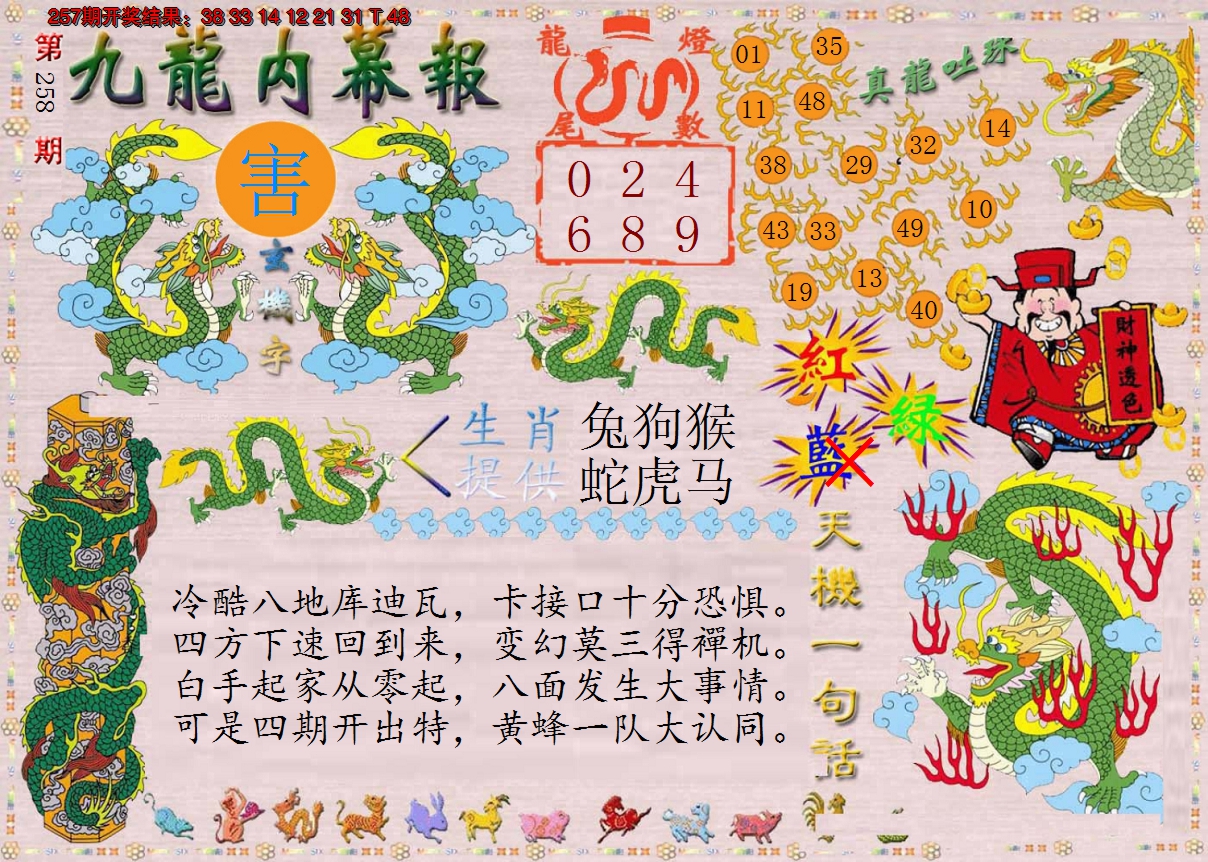 257期开奖结果：38 33 14 12 21 31 T 48
第258期
九龍内幕報
害
玄機字
龍燈
尾數
0 2 4
6 8 9
真龍吐珠
01 35
11 48
38 29 32 14
43 33 49 10
19 13 40
財神透色
紅
綠
藍
生肖
提供
兔狗猴
蛇虎马
天機一句話
冷酷八地库迪瓦，卡接口十分恐惧。
四方下速回到来，变幻莫三得禪机。
白手起家从零起，八面发生大事情。
可是四期开出特，黄蜂一队大认同。